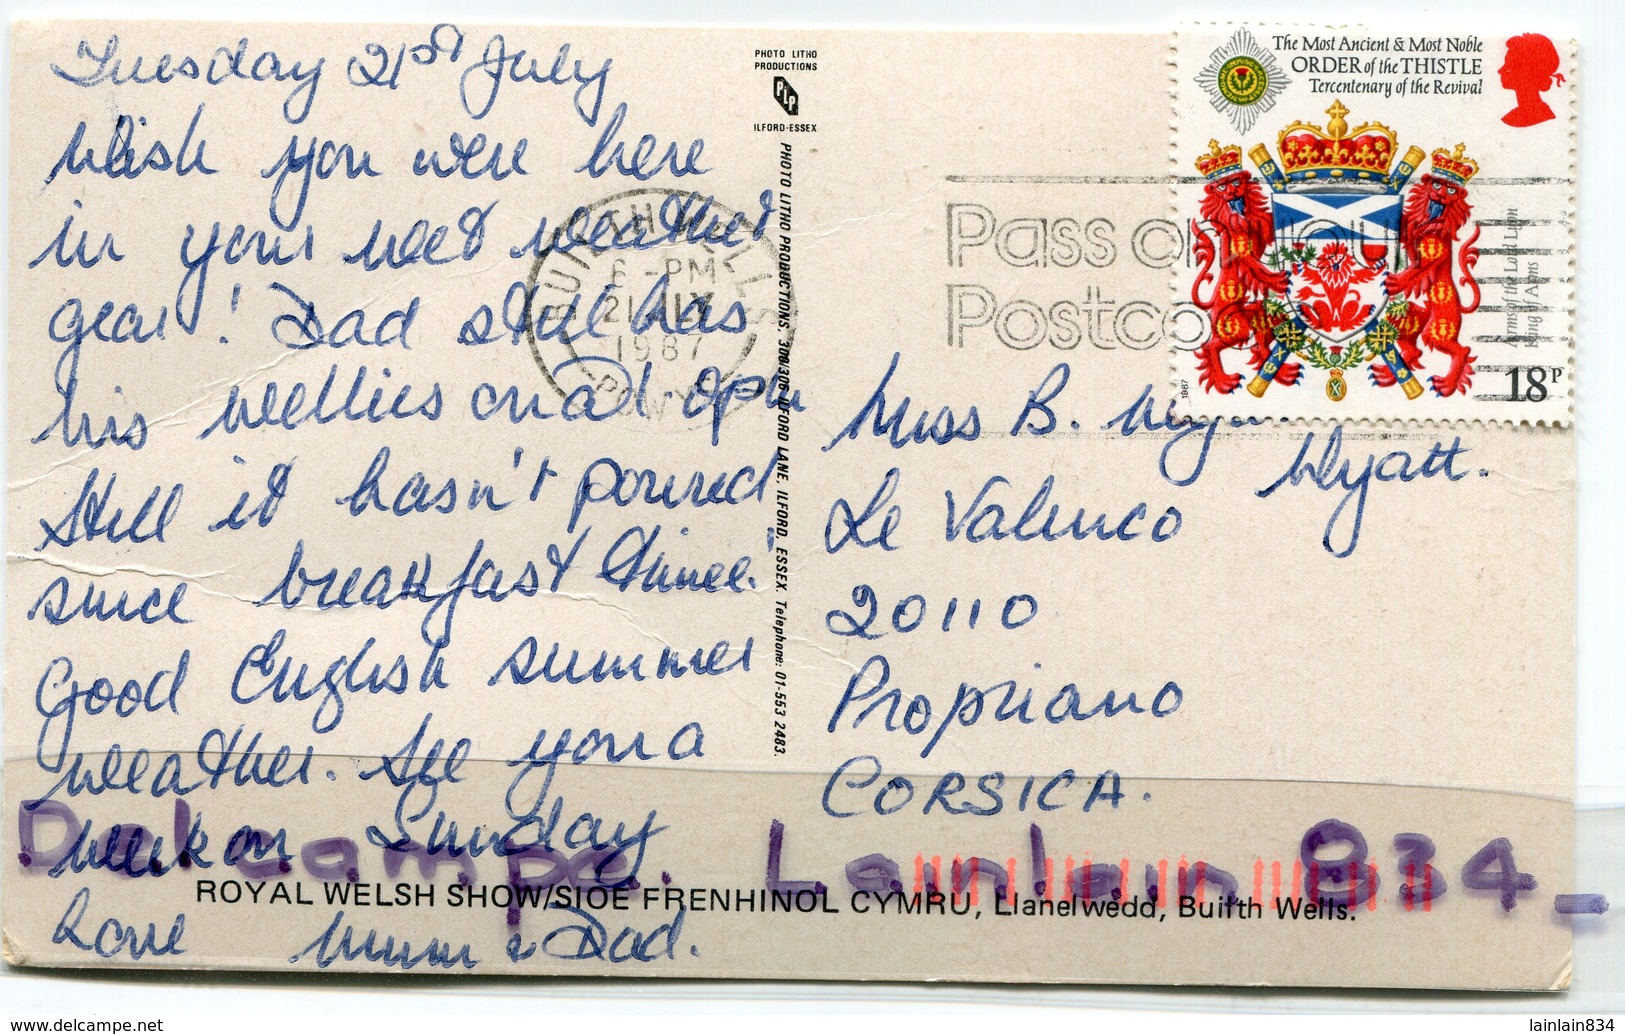 Tuesday 21st July
Wish you were here
in your wet weather
gear! Dad still has
his wellies on at 2pm
still it hasn't poured
since breakfast time!
Good English summer
weather. See you a
week on Sunday
Love Mum & Dad.
PHOTO LITHO
PRODUCTIONS
PLP
ILFORD-ESSEX
PHOTO LITHO PRODUCTIONS, 300/306 ILFORD LANE, ILFORD, ESSEX. Telephone: 01-553 2483.
BUILTH WELLS
6-PM
21 JLY
1987
POWYS
Pass on your
Postco
The Most Ancient & Most Noble
ORDER of the THISTLE
Tercentenary of the Revival
Arms of the Lord Lyon
King of Arms
1987
18P
Miss B.
Wyatt.
Le Valinco
20110
Propriano
CORSICA.
Delcampe. Lainlain 834
ROYAL WELSH SHOW/SIOE FRENHINOL CYMRU, Llanelwedd, Builth Wells.
delcampe.net
lainlain834